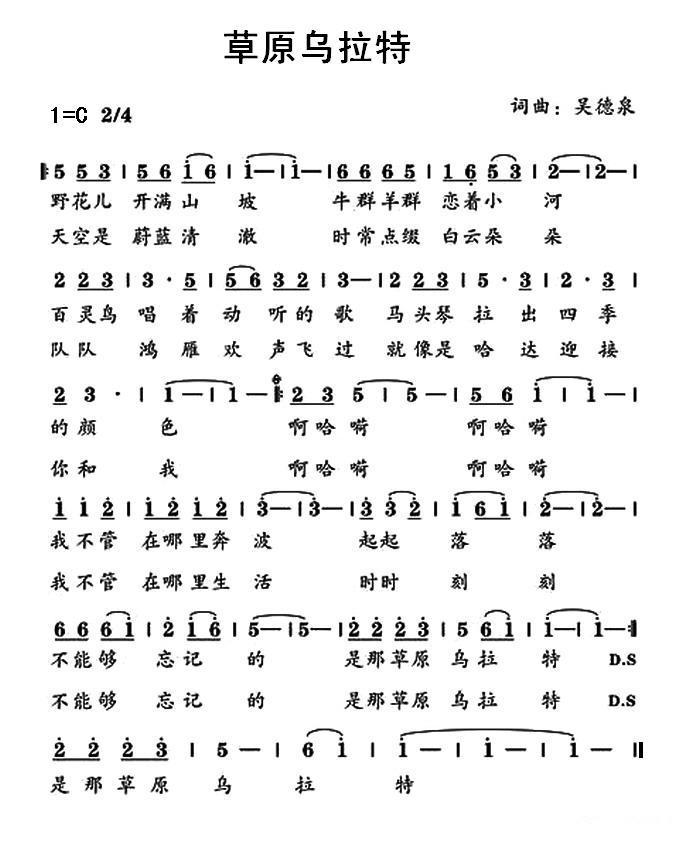 草原乌拉特
1=C 2/4
词曲：吴德泉
5 5 3 | 5 6 1 6 | 1— | 1— | 6 6 6 5 | 1 6 5 3 | 2— | 2— |
野花儿 开满山 坡 牛群羊群 恋着小 河
天空是 蔚蓝清 澈 时常点缀 白云朵 朵
2 2 3 | 3 · 5 | 5 5 6 3 2 | 3— | 2 2 3 | 5 · 3 | 2 · 3 |
百灵鸟 唱 着 动 听的 歌 马头琴 拉 出 四 季
队队 鸿 雁 欢 声飞 过 就像是 哈 达 迎 接
2 3 · | 1 — | 1 — 2 3 5 | 5 — | 5 6 1 | 1 — |
的颜 色 啊哈嗬 啊哈嗬
你和 我 啊哈嗬 啊哈嗬
1 1 2 | 1 2 1 2 | 3— | 3— | 3 3 2 | 1 6 1 | 2— | 2— |
我不管 在哪里奔 波 起起 落 落
我不管 在哪里生 活 时时 刻 刻
6 6 6 1 | 2 1 6 | 5— | 5— | 2 2 2 3 | 5 6 1 | 1— | 1— :||
不能够 忘记 的 是那草原 乌拉 特 D.S
不能够 忘记 的 是那草原 乌拉 特 D.S
2 2 2 3 | 5 — | 6 1 | 1 — | 1 — | 1 — ||
是那草原 乌 拉 特